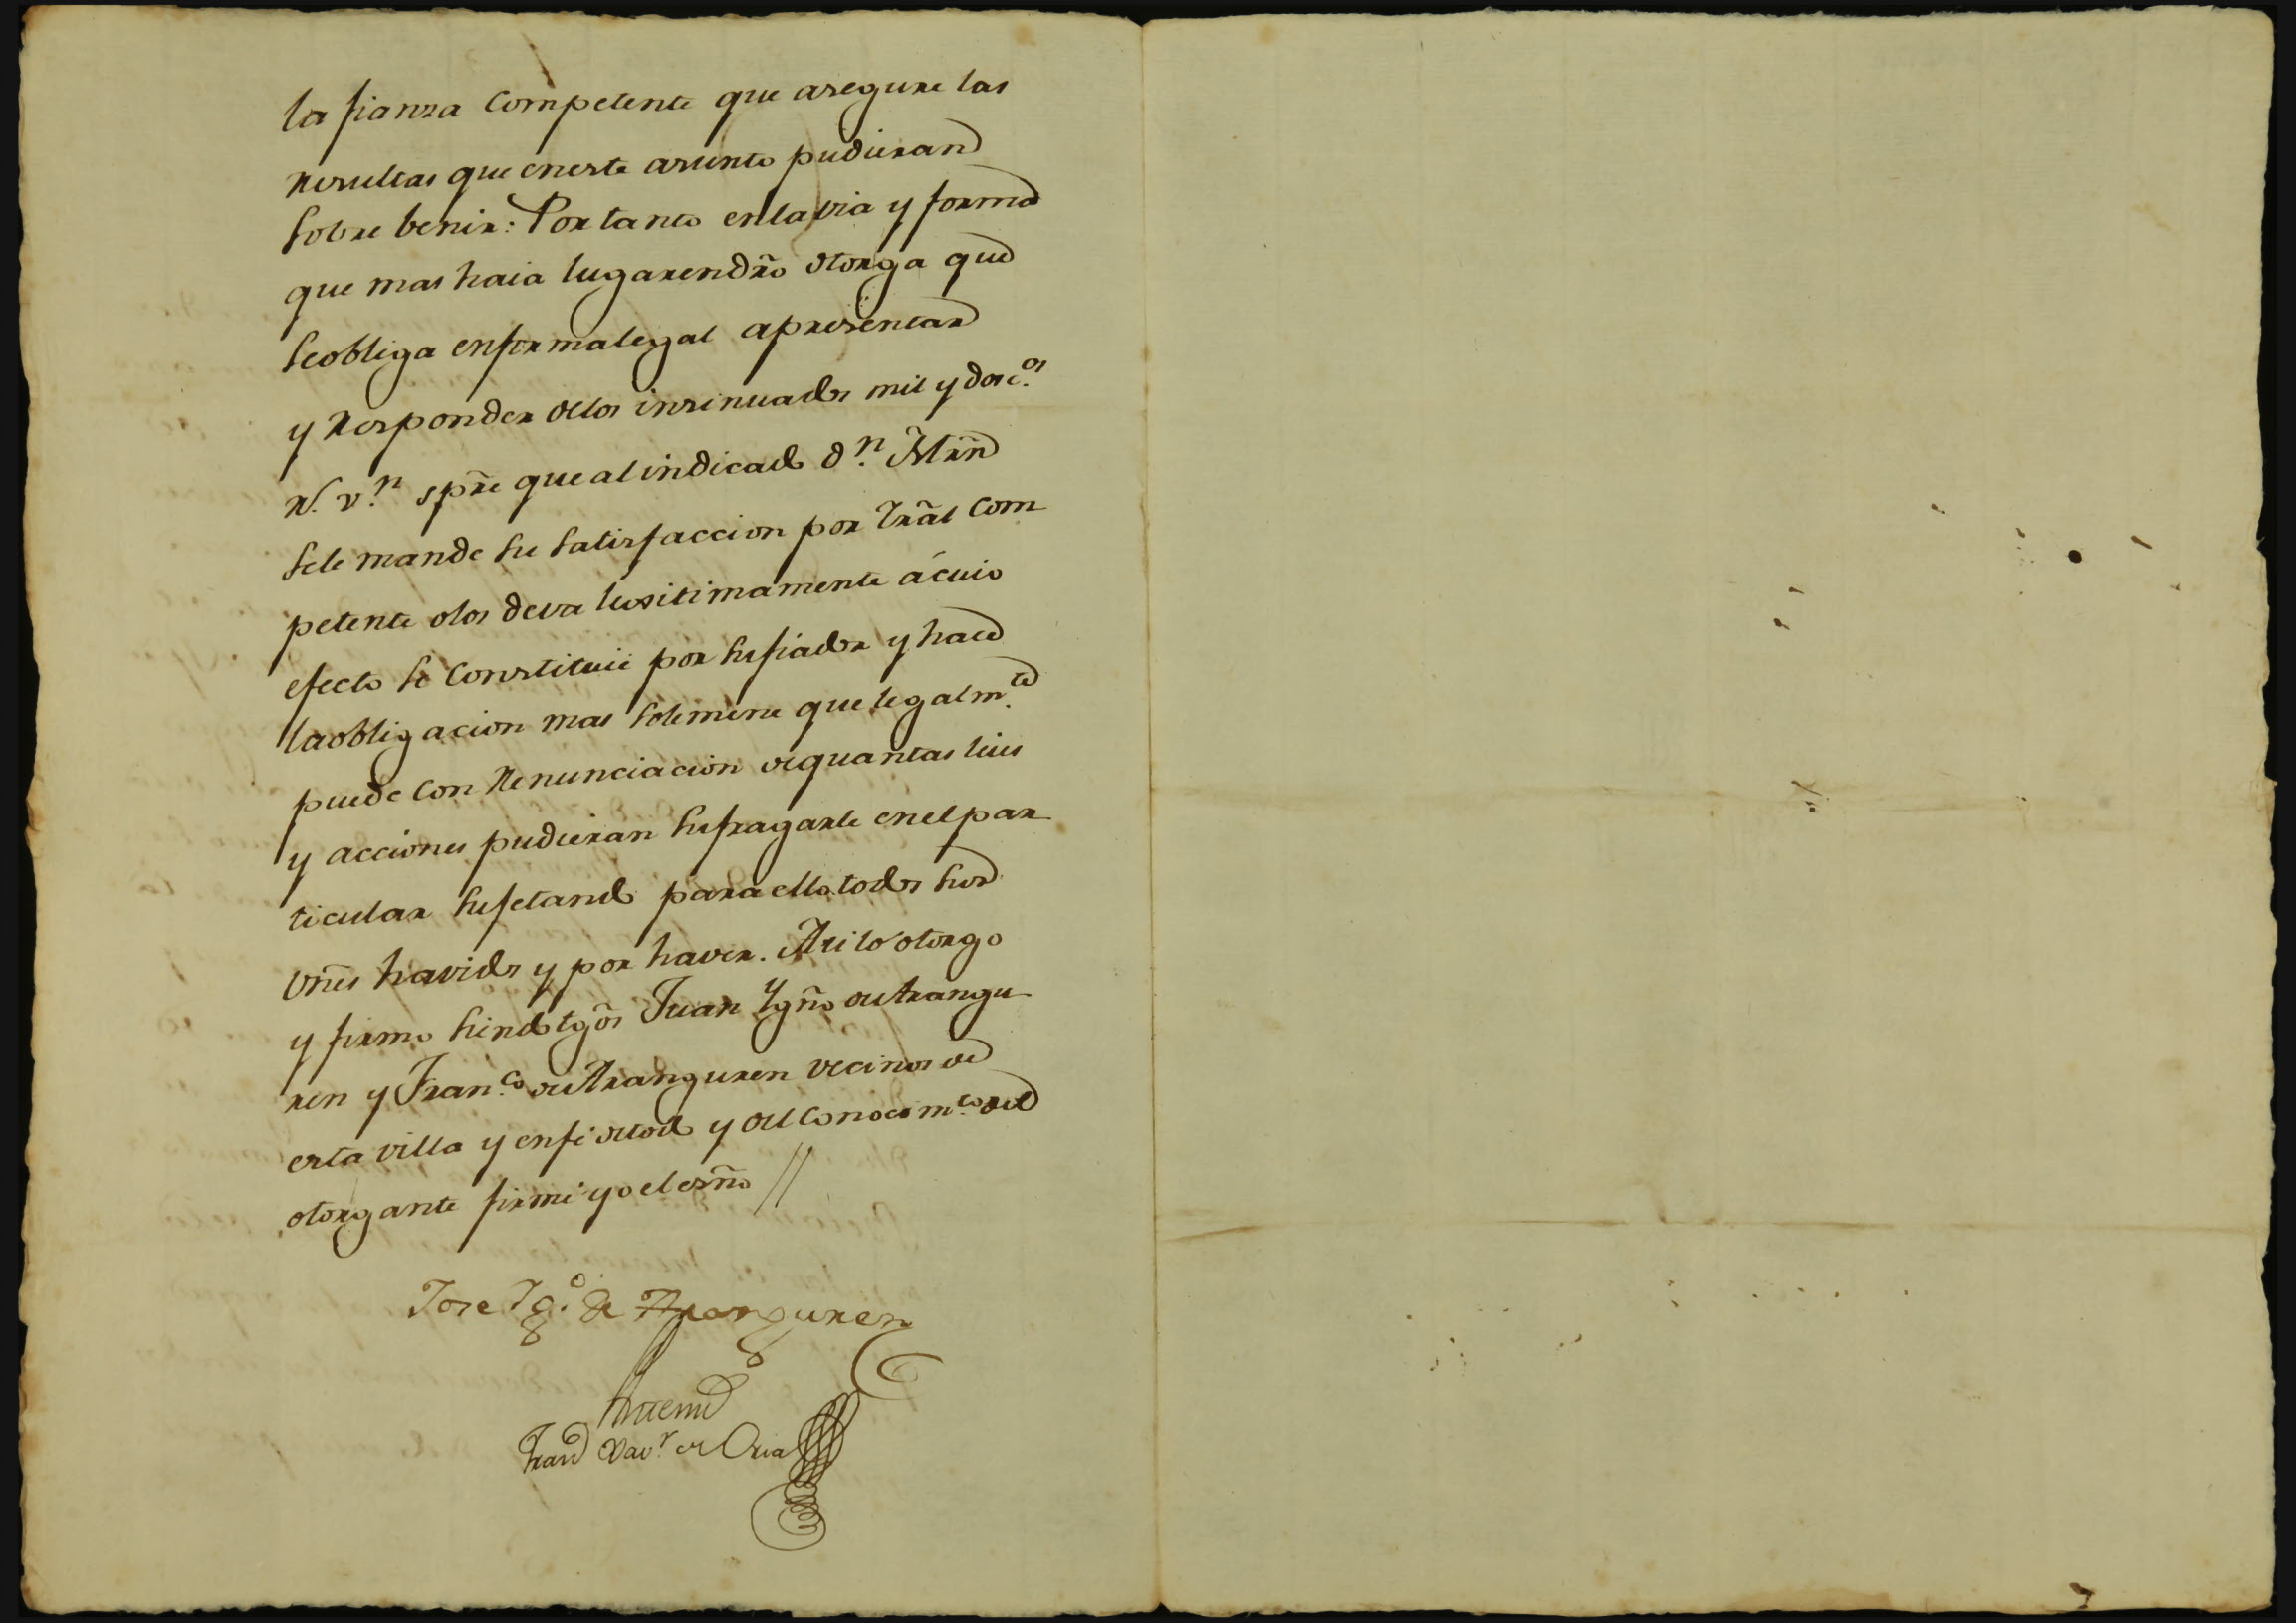 la fianza Competente que asegure las
resultas que eneste asunto pudieran
sobre benir: Por tanto enlavia y forma
que mas haia lugar endr̃o otorga que
seobliga enforma legal apresentar
y responder delos insinuados mil y dosc.os
R.s v.n spr̃e que al indicado d.n Mr̃n
sele mande su satisfaccion por Tr̃al Com
petente olos deva lexitimamente ácuio
efecto se Constituie por su fiador y hace
laobligacion mas solemne que legalm.te
puede Con renunciacion de quantas leies
y acciones pudieran sufragarle enel par
ticular sugetando para ello todos sus
vñes havidos y por haver. Asi lo otorgo
y firmo siendo tgõs Juan Ygñ.o de Arangu
ren y Fran.co de Aranguren vecinos de
esta villa y enfe detodo y del Conocim.to del
otorgante firmé yo el esñ.o //
Jose Ig.o de Aranguren
Antemi
Fran.co Xav.r de Oria